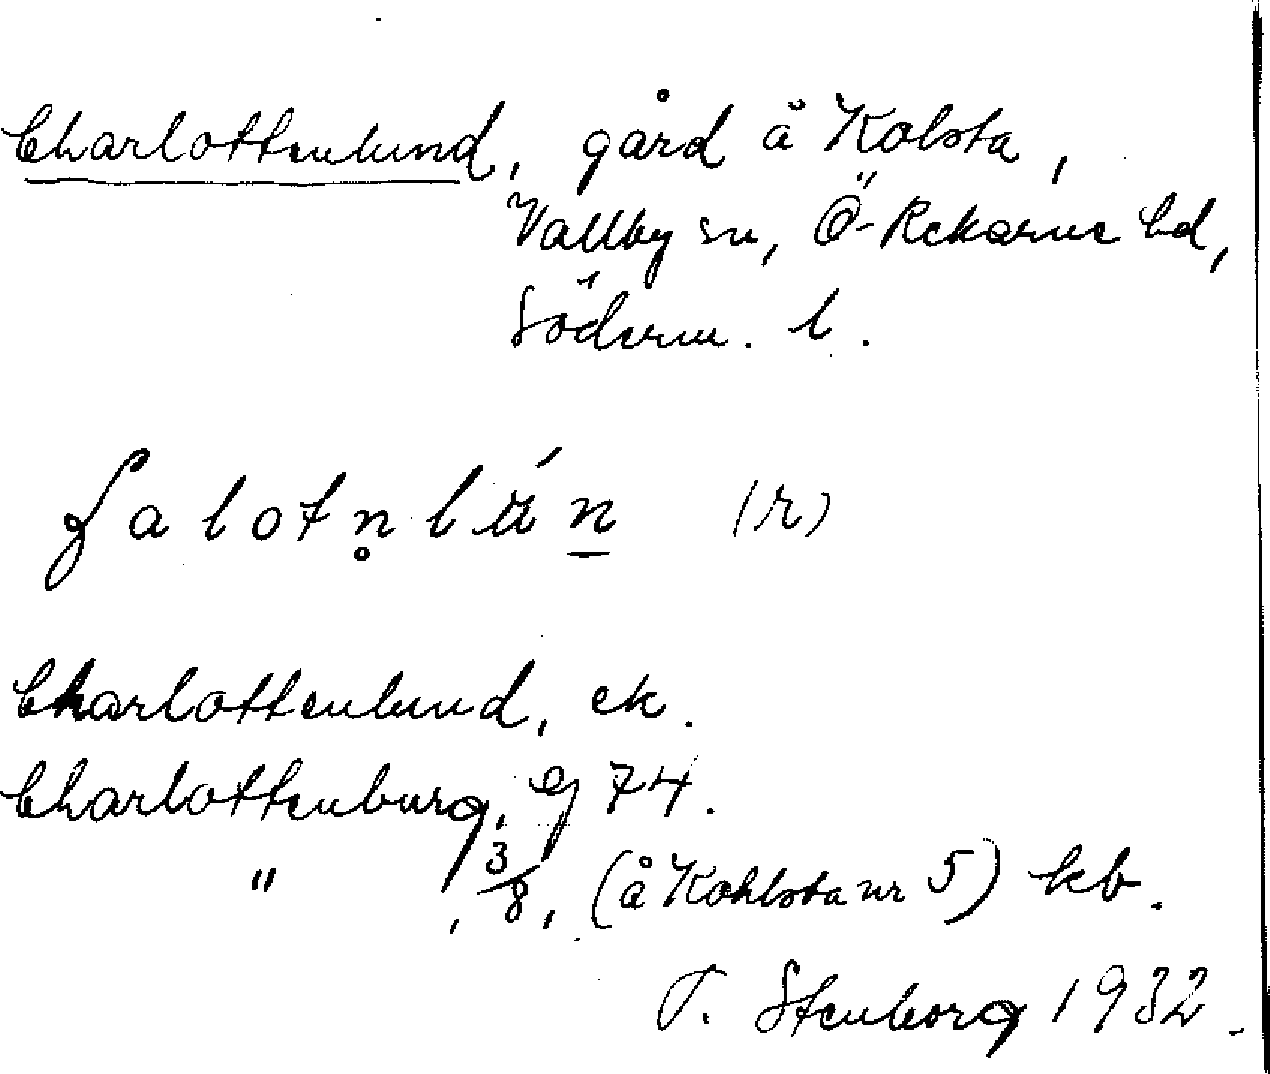 Charlottenlund, gård å Kolsta,
Vallby sn, Ö-Rekarne hd,
Söderm. l.
ʃalotn̥lún̲ (r)
Charlottenlund, ek.
Charlottenburg, ej 74.
" , 3/8, (å Kohlsta nr 5) kb.
T. Stenborg 1932.